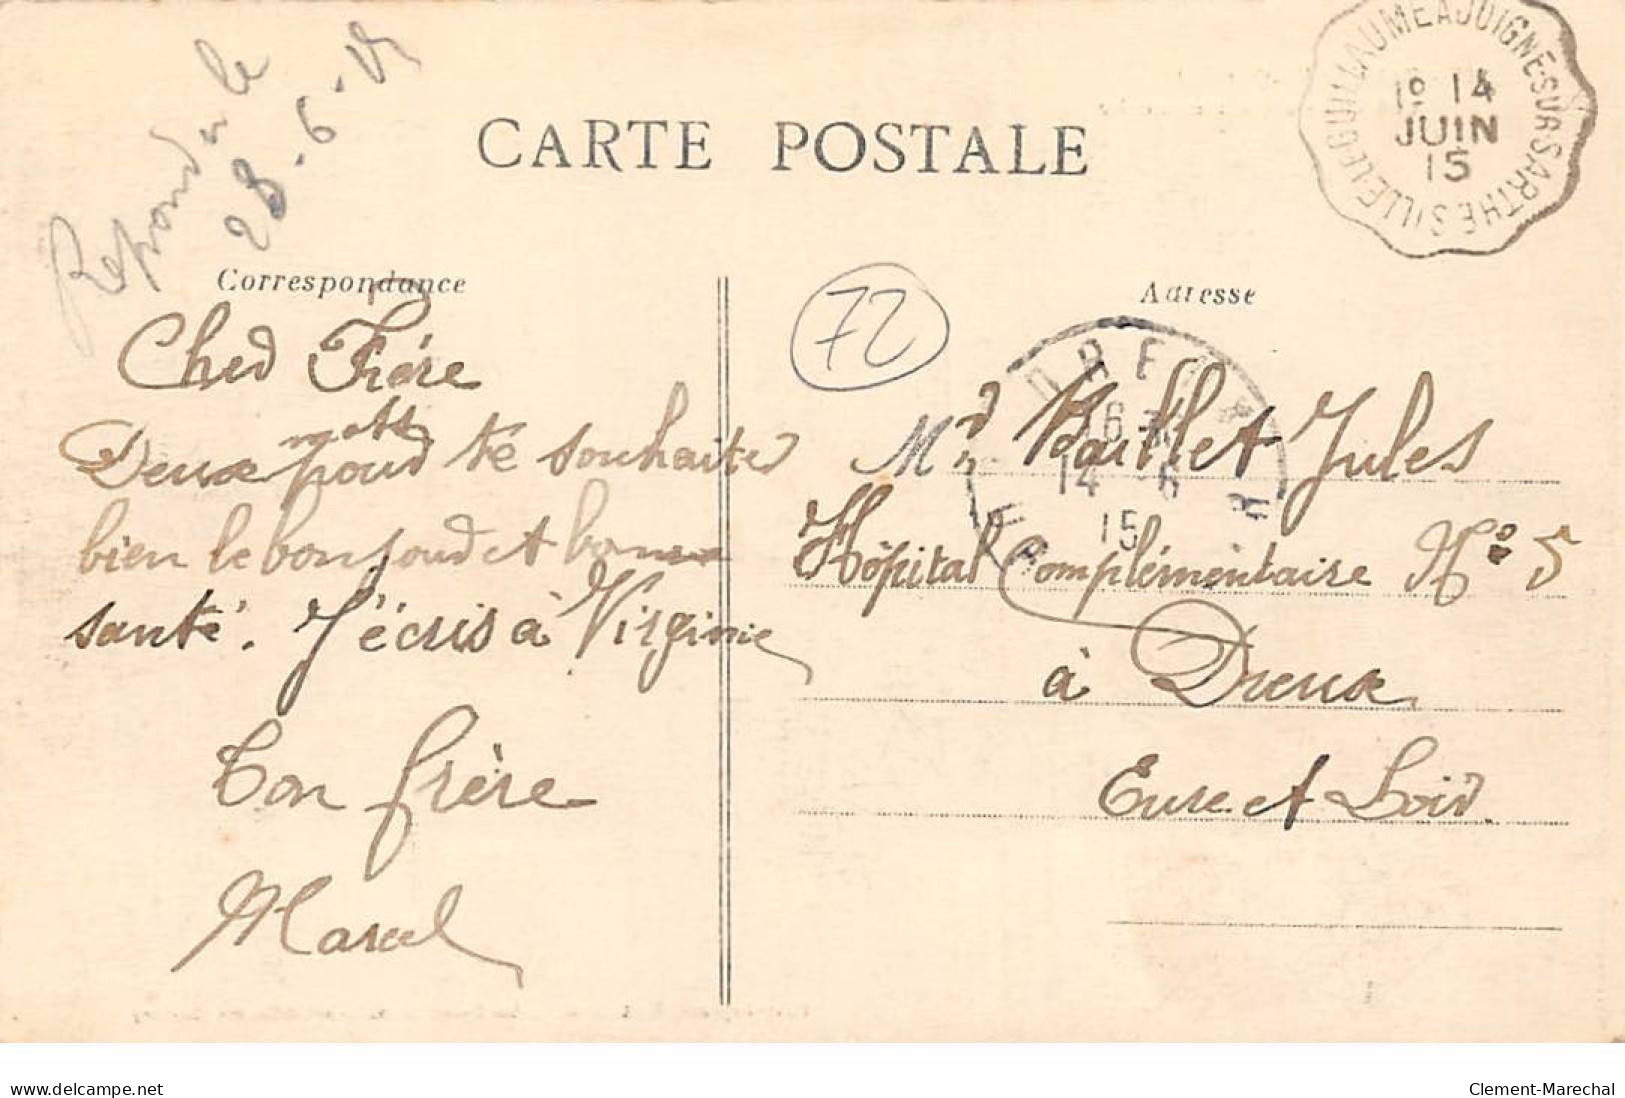 Repondu le
28-6-15
SILLE LE GUILLAUME A JUIGNE-SUR-SARTHE
1º 14
JUIN
15
CARTE POSTALE
Correspondance
Adresse
72
Cher Frère
Deux mots pour te souhaiter
bien le bonjour et bonne
santé. J'écris à Virginie
Ton frère
Marcel
DREUX
16 30
14 -6
15
Mr Baillet Jules
Hôpital Complémentaire No 5
à Dreux
Eure et Loir.
www.delcampe.net
Clement-Marechal